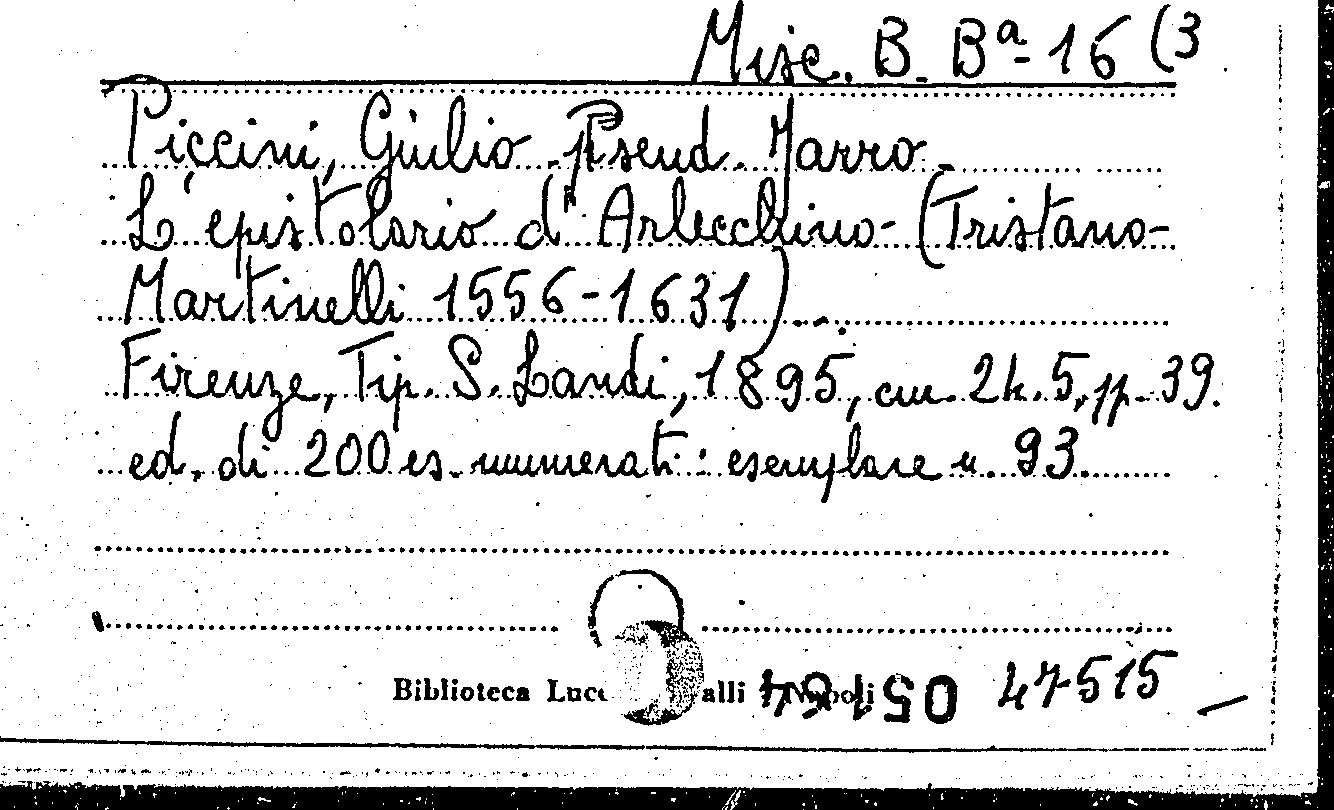 Misc. B. Bª-16 (3
Piccini, Giulio. Pseud. Jarro.
L'epistolario d'Arlecchino- (Tristano-
Martinelli 1556-1631)...
Firenze, Tip. S. Landi, 1895, cm. 24.5, pp. 39.
ed. di 200 es. numerati: esemplare n. 93.
Biblioteca Lucc alli Napoli 47515